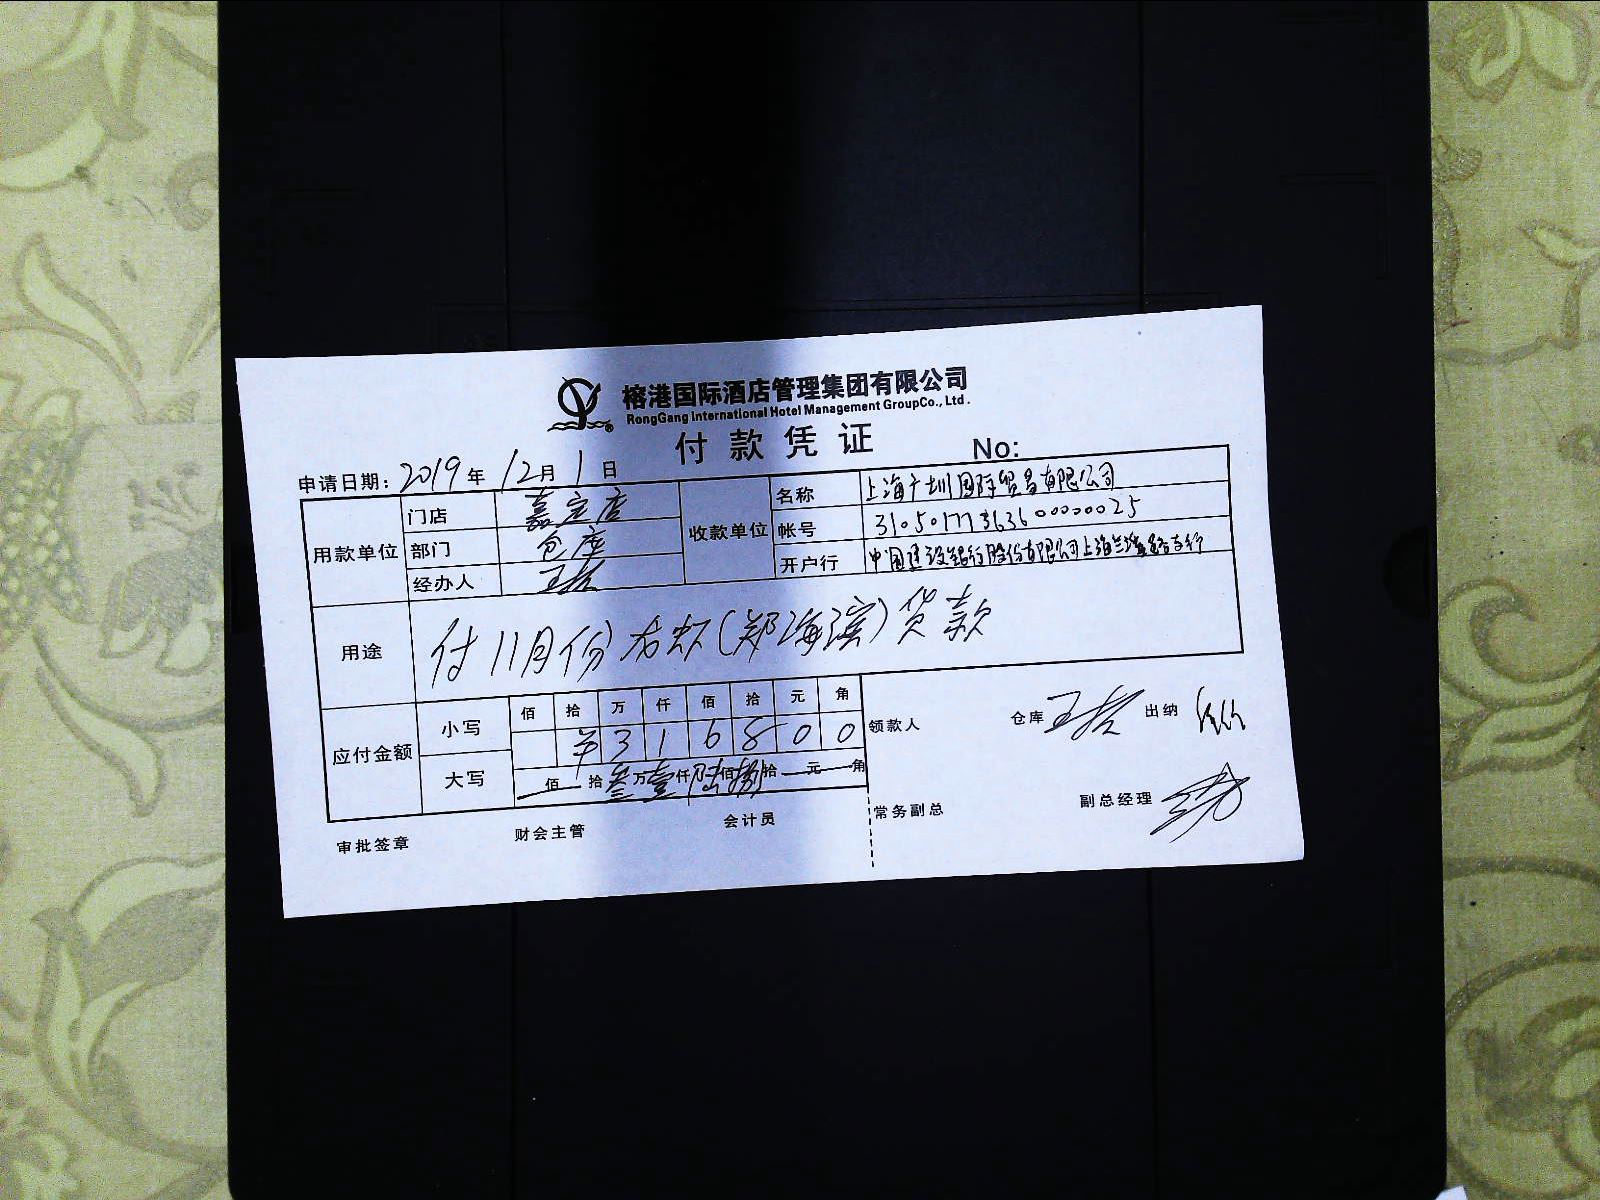 榕港国际酒店管理集团有限公司
RongGang International Hotel Management GroupCo., Ltd.
付款凭证 No:
申请日期: 2019 年 12 月 1 日
用款单位 门店 嘉定店 收款单位 名称 上海广圳国际贸易有限公司
部门 仓库 帐号
经办人 开户行 中国建设银行股份有限公司上海
用途 付11月份 (郑海滨)货款
应付金额 小写 佰 拾 万 仟 佰 拾 元 角
¥ 3 1 6 8 0 0
大写 佰 拾 叁万壹仟陆佰捌拾 元 角
领款人 仓库 出纳
常务副总 副总经理
审批签章 财会主管 会计员